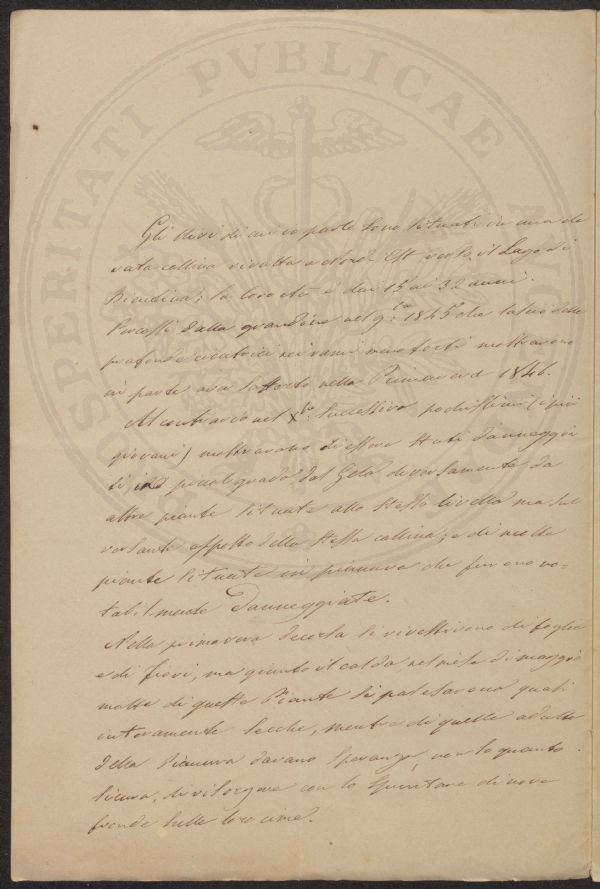 PROSPERITATI PVBLICAE
Gli ulivi di cui io parlo sono situati in una ele
vata collina rivolta a Nord-Est verso il Lago di
Bientina; la loro età è dai 15 ai 32 anni.
Percossi dalla grandine nel 9.bre 1845 che lasciò delle
profonde cicatrici nei rami meno forti mostrarono
in parte aver sofferto nella Primavera del 1846.
Al contrario nel Xbre successivo pochissimi (i più
giovani) mostravano di essere stati danneggia
ti, in piccol grado dal Gelo diversamente da
altre piante situate allo stesso livello ma sul
versante opposto della stessa collina; e di molte
piante situate in pianura che furono no=
tabilmente danneggiate.
Nella primavera decorsa si rivestirono di foglie
e di fiori, ma giunto il caldo nel mese di maggio
molte di queste Piante si palesarono quasi
interamente secche, mentre di quelle adulte
della pianura davano speranza, non so quanto
sicura, di risorgere con lo spuntare di nuove
fronde sulle loro cime.